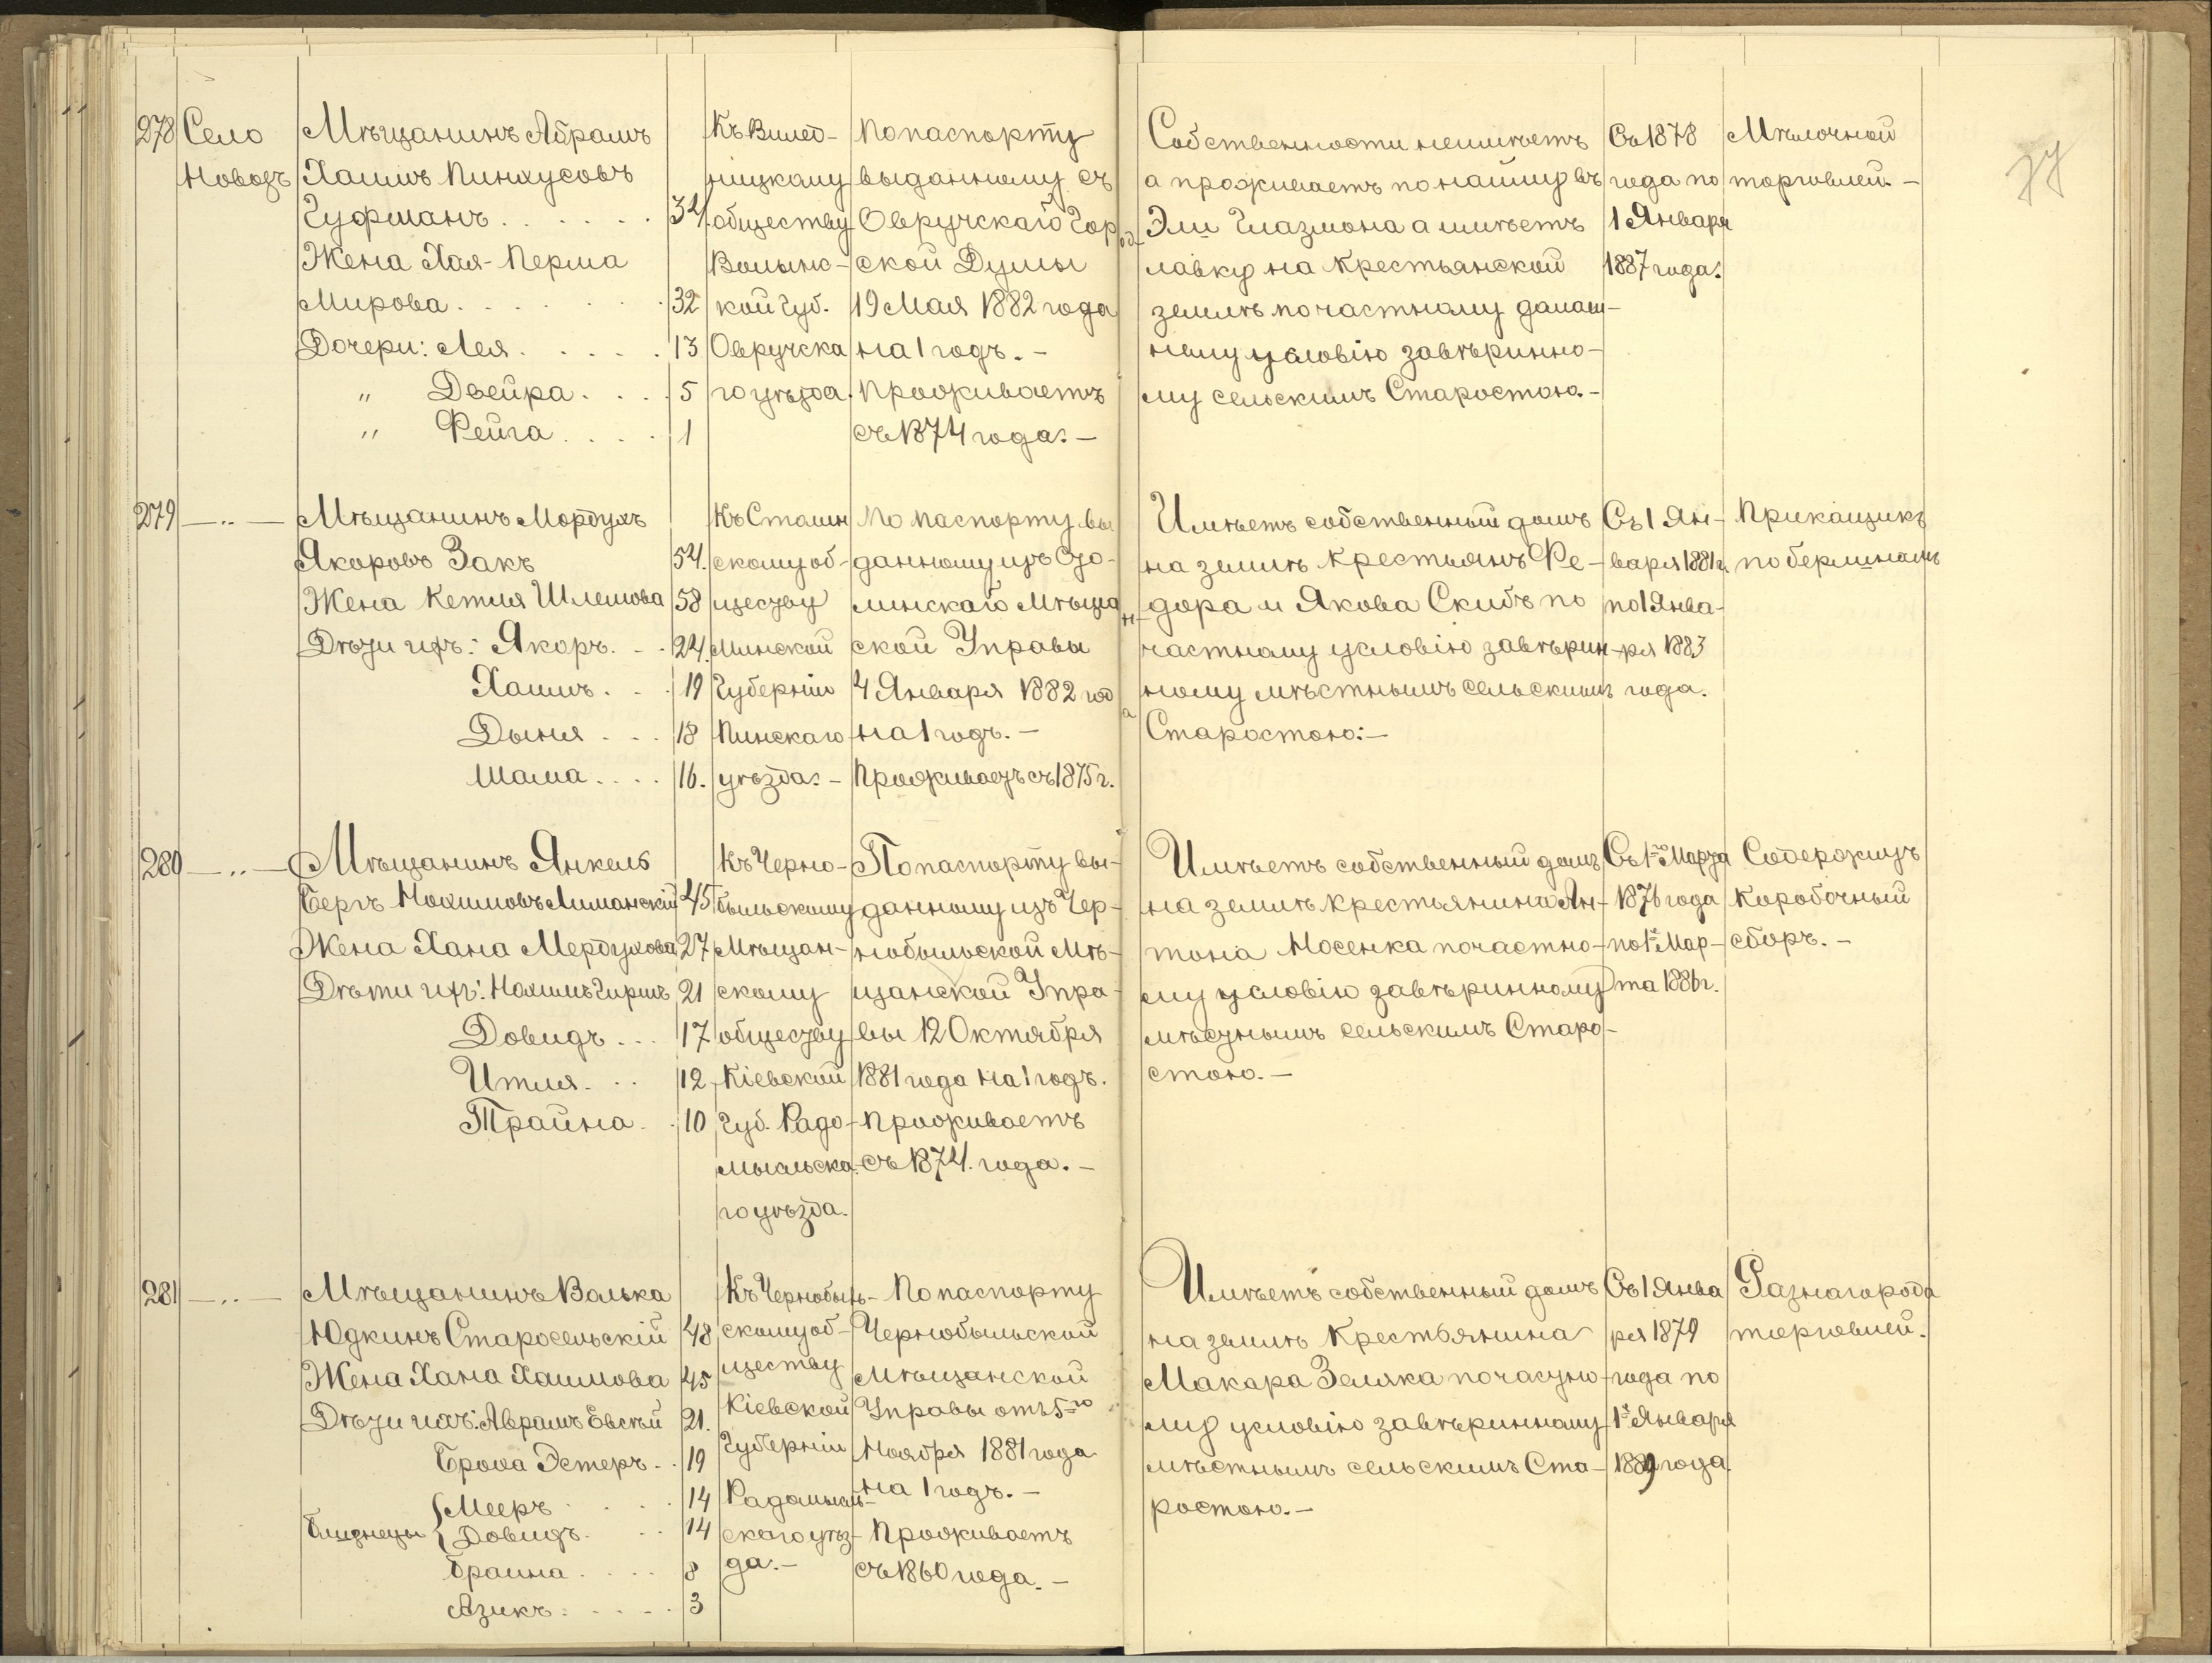 278
Село
Новозъ
Мѣщанинъ Абрамъ
Хаимъ Пинхусовъ
Гуфманъ 34.
Жена Хая-Перма
Мирова 32
Дочери: Лея 13
" Двейра 5
" Фейга 1
ницкому
обществу
Волынс-
кой Губ.
Овручска
го уѣзда.
По паспорту
выданному съ
Овручскаго Город-
ской Думы
19 Мая 1882 года
на 1 годъ. –
Проживаетъ
съ 1874 года. –
Собственности неимѣетъ
а проживаетъ по найму въ
Эли Глазмона а имѣетъ
лавку на Крестьянской
землѣ по частному
условію завѣринно-
му сельскимъ Старостою. –
Съ 1878
года по
1 Января
1887 года.
Мѣлочной
торговлей. –
279 — „ —
Мѣщанинъ Мордухъ
Якоровъ Закъ 54.
Жена Кетля Шлемова 58
Дѣти ихъ: Якоръ 24.
Хаимъ 19
Дыня 18
Шама 16.
Къ Столин
скому об-
ществу
Минской
Губерніи
Пинскаго
уѣзда. –
По паспорту вы
данному изъ Сто-
линскаго Мѣщан-
ской Управы
4 Января 1882 года
на 1 годъ. –
Проживаетъ съ 1875 г.
Имѣетъ собственный домъ
на землѣ Крестьянъ Фе-
дора и Якова Скибъ по
частному условію завѣрин-
ному мѣстнымъ сельскимъ
Старостою: –
Съ 1 Ян-
варя 1881 г.
по 1 Янва-
ря 1883
года.
Прикащикъ
по берлинамъ
280 — „ —
Мѣщанинъ Янкель
Беръ Нохимовъ Лиманскій 45
Жена Хана Мердухова 27
Дѣти ихъ: Нахимъ Гиршъ 21
Довидъ 17
Итля 12
Трайна 10
Къ Черно-
быльскому
Мѣщан-
скому
обществу
Кіевской
Губ. Радо-
мысльска-
го уѣзда.
По паспорту вы-
данному изъ Чер-
нобыльской Мѣ-
щанской Упра-
вы 12 Октября
1881 года на 1 годъ.
Проживаетъ
съ 1874. года. –
Имѣетъ собственный домъ
на землѣ Крестьянина Ан-
тона Носенка по частно-
му условію завѣринному
мѣстнымъ сельскимъ Старо-
стою. –
Съ 1го Марта
1876 года
по 1е Мар-
та 1886 г.
Содержитъ
Коробочный
сборъ. –
281 — „ —
Мѣщанинъ Волька
Юдкинъ Старосельскій 48
Жена Хана Хаимова 45
Дѣти ихъ: Аврамъ Евсѣй 21.
Броха Эстеръ 19
Близнецы { Мееръ 14
Довидъ 14
Браина 8
Азикъ 3
Къ Чернобыль-
скому об-
ществу
Кіевской
Губерніи
Радомысль-
скаго уѣз-
да. –
По паспорту
Чернобыльской
Мѣщанской
Управы отъ 5го
Ноября 1881 года
на 1 годъ. –
Проживаетъ
съ 1860 года. –
Имѣетъ собственный домъ
на землѣ Крестьянина
Макара Зеляка по частно-
му условію завѣринному
мѣстнымъ сельскимъ Ста-
ростою. –
Съ 1 Янва
ря 1879
года по
1е Января
1889 года
Разнаго рода
торговлей.